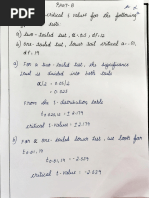 Part-B
critical t value for the following
test.
a) two-tailed test, α = 0.5, df = 12
b) one-tailed test, lower tail critical α = 0.01,
df = 19
a) For a two-tailed test, the significance
level is divided into both tails
From the t distribution table
critical t-value = ±2.179
t = ± 2.179
b) For a one-tailed lower test, we look for
t 0.01, 19
t 0.01, 19 = -2.539
critical t-value = -2.539